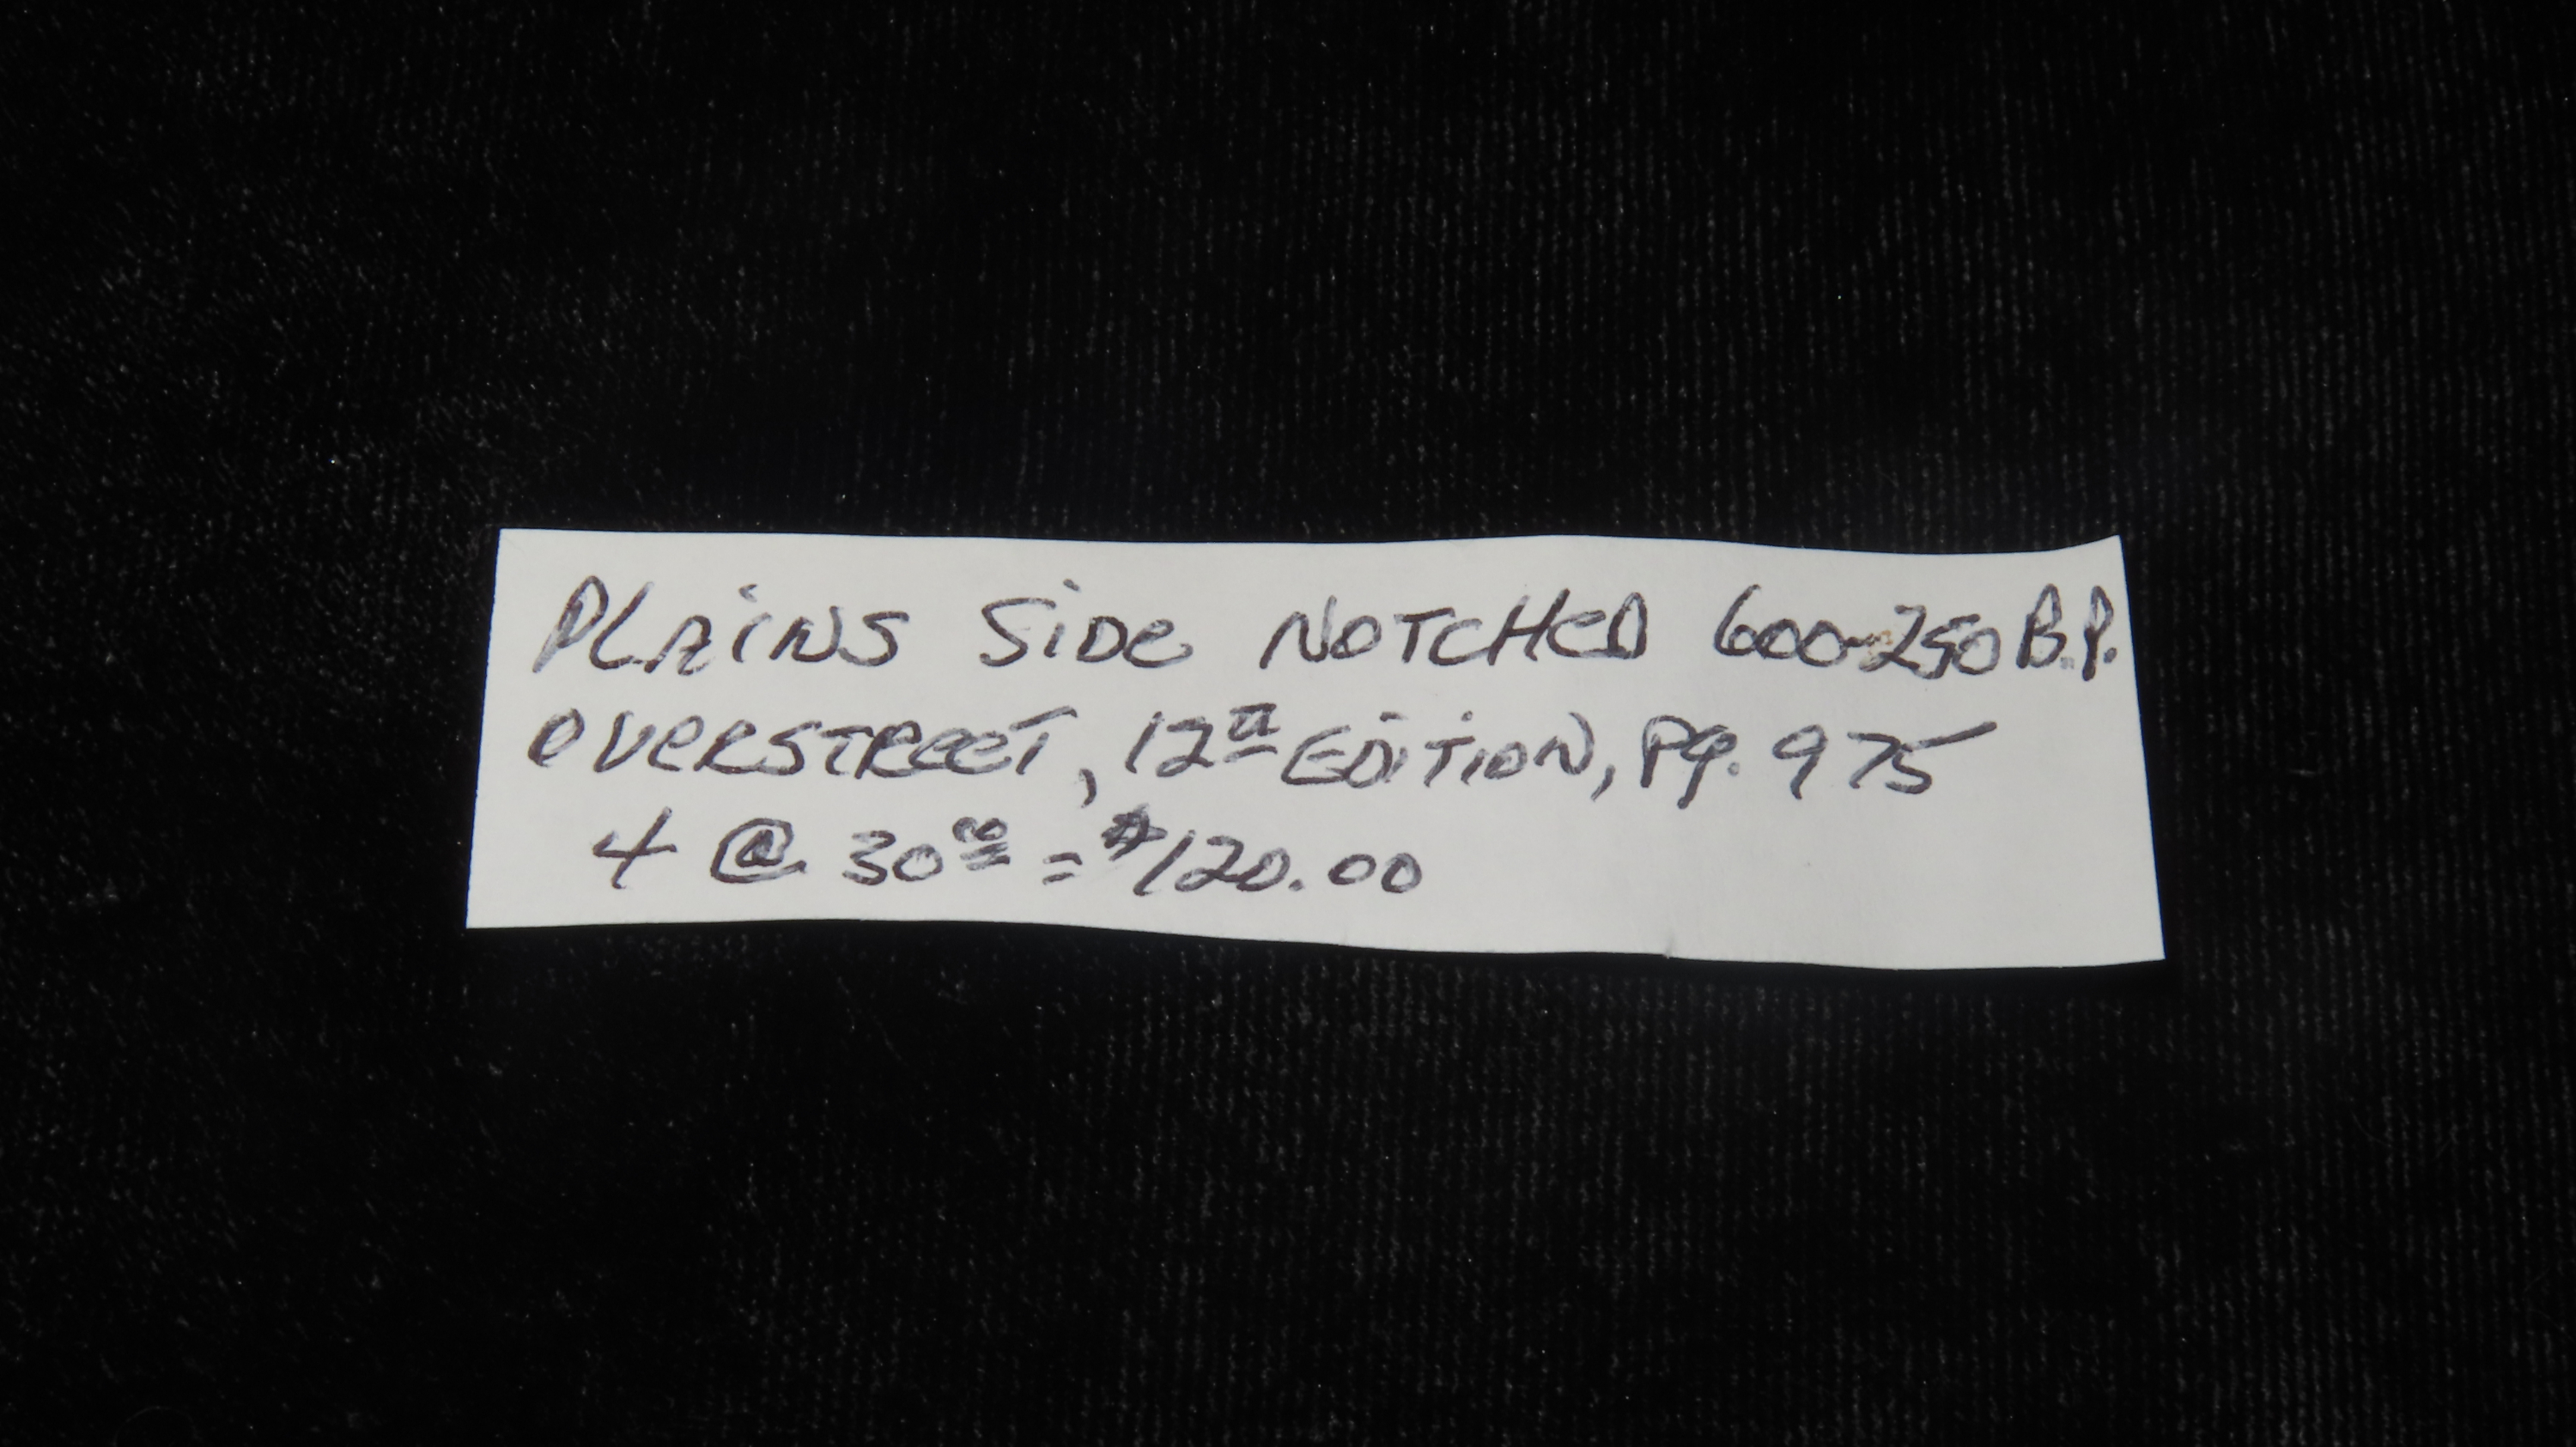 PLAINS SIDE NOTCHED 600-250 B.P.
OVERSTREET, 12th EDITION, Pg. 975
4 @ 30.00 = $120.00